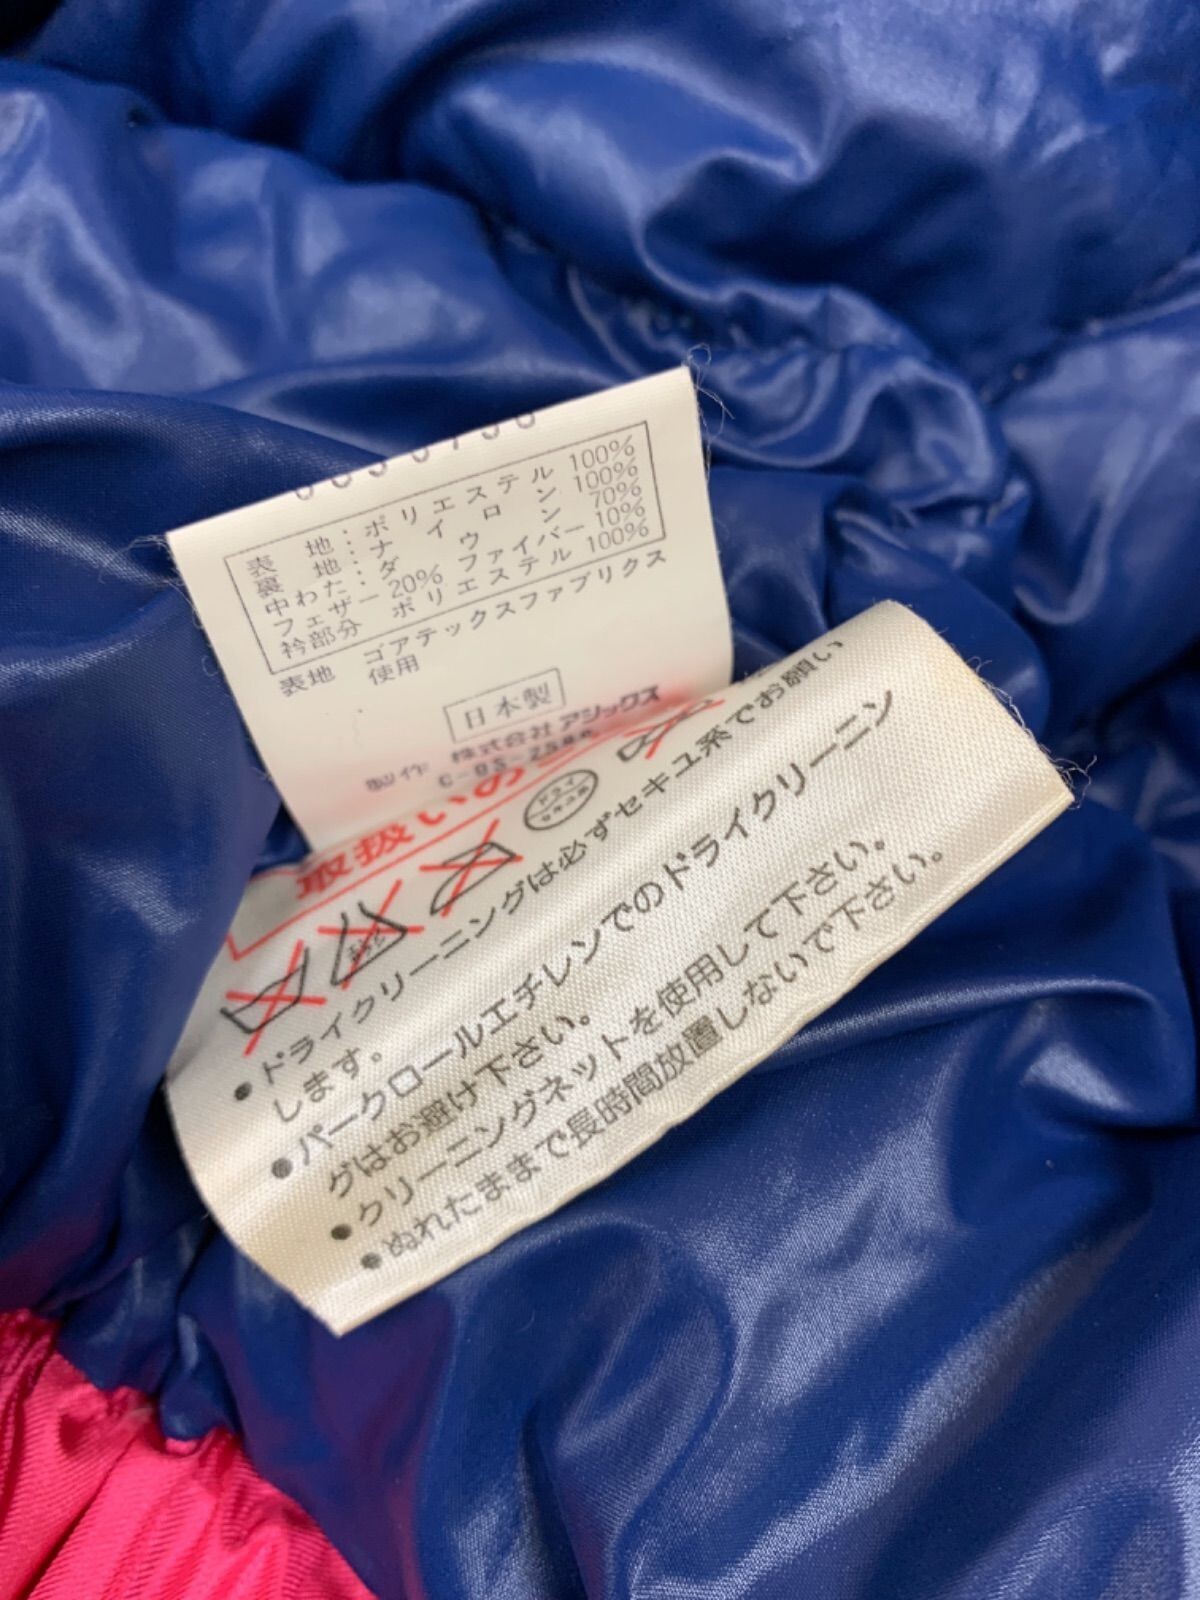 表地：ポリエステル 100%
裏地：ナイロン 100%
中わた：ダウン 70%
フェザー 20% ファイバー 10%
衿部分 ポリエステル 100%
表地 ゴアテックスファブリクス
使用
日本製
製作 株式会社アシックス
取扱いの
ドライ
セキユ系
●ドライクリーニングは必ずセキユ系でお願い
します。
●パークロールエチレンでのドライクリーニン
グはお避け下さい。
●クリーニングネットを使用して下さい。
●ぬれたままで長時間放置しないで下さい。